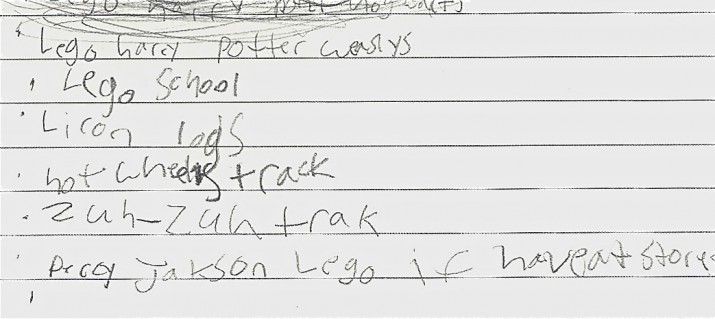 Lego harry potter weaslys
Lego School
Licon logs
hot wheels track
zuh-zuh trak
Percy Jakson Lego if have at store